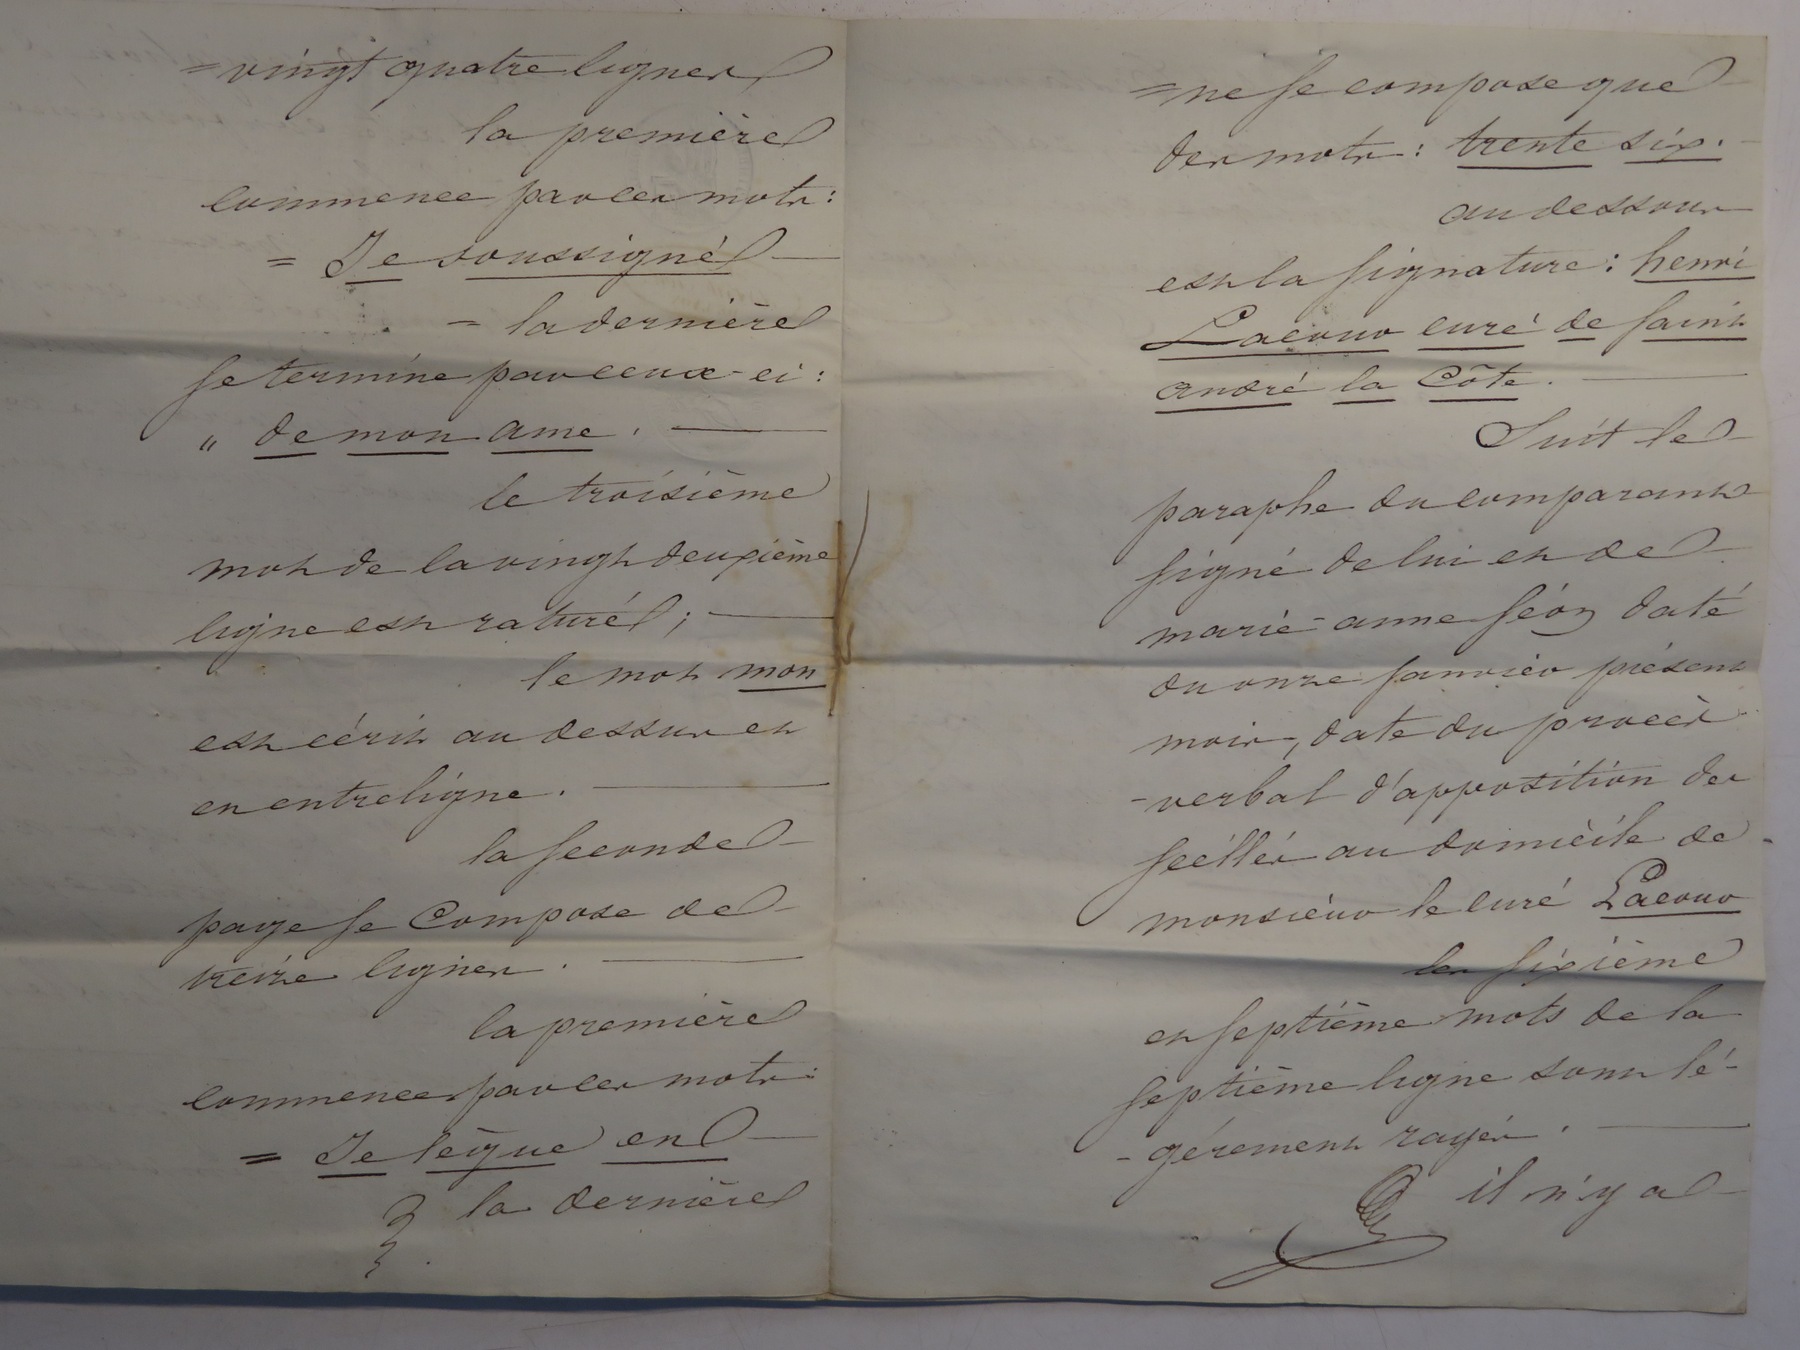 = vingt quatre lignes
la première
commence par ces mots :
= Je soussigné
= la dernière
se termine par ceux-ci :
" de mon ame .
le troisième
mot de la vingt deuxième
ligne est raturé ;
le mot mon
est écrit au dessus et
en entreligne .
la seconde
page se compose de
treize lignes .
la première
commence par ces mots :
= Je lègue en
la dernière
= ne se compose que
des mots : trente six .
au dessous
est la signature : henri
Lacour curé de saint
andré la Côte .
Suit le
paraphe du comparant
signé de lui et de
marie-anne féoz daté
du onze janvier présent
mois, date du procès
-verbal d'apposition des
scéllés au domicile de
monsieur le curé Lacour
les sixième
et septième mots de la
septième ligne sont lé-
-gérement rayés .
il n'y a